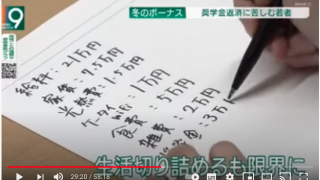 9
冬のボーナス
奨学金返済に苦しむ若者
給料: 21万円
家賃: 7.5万円
光熱費: 1.5万円
ケータイ wifi 1万円
食費: 5万円
雑費 2万円
3万
生活切り詰めるも限界に
29:20 / 58:18